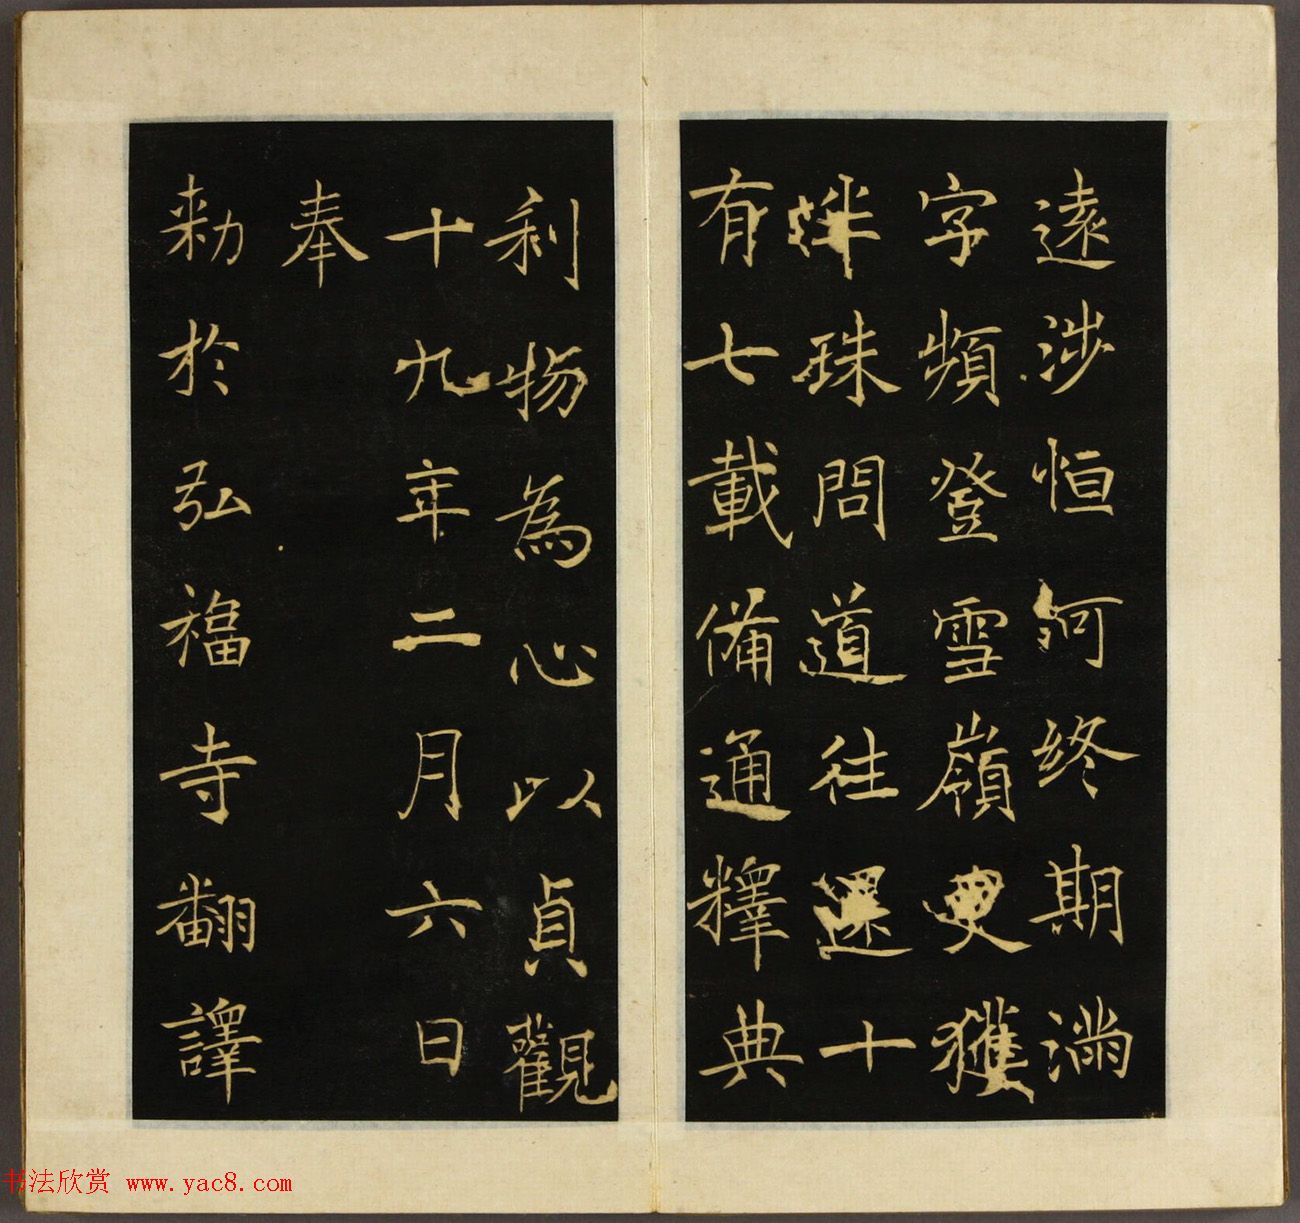 遠涉恒河終期滿
字頻登雪嶺更獲
半珠問道往還十
有七載備通釋典
利物為心以貞觀
十九年二月六日
奉
勑於弘福寺翻譯
书法欣赏 www.yac8.com